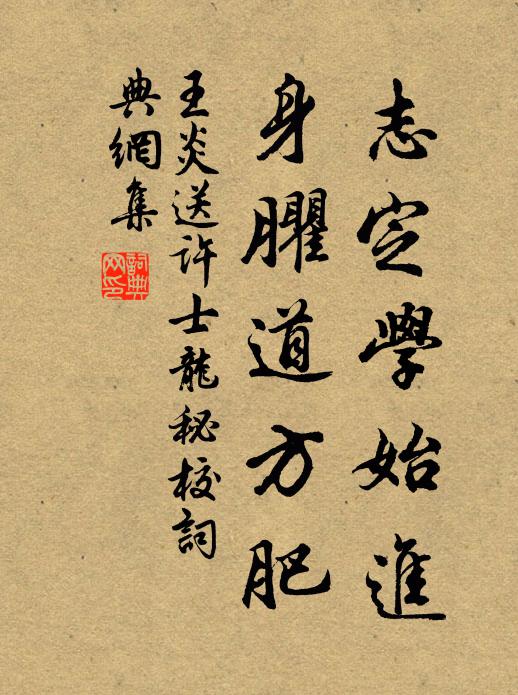 志定學始進
身臞道方肥
王炎送许士龍秘校詞
典網集
詞典
网印